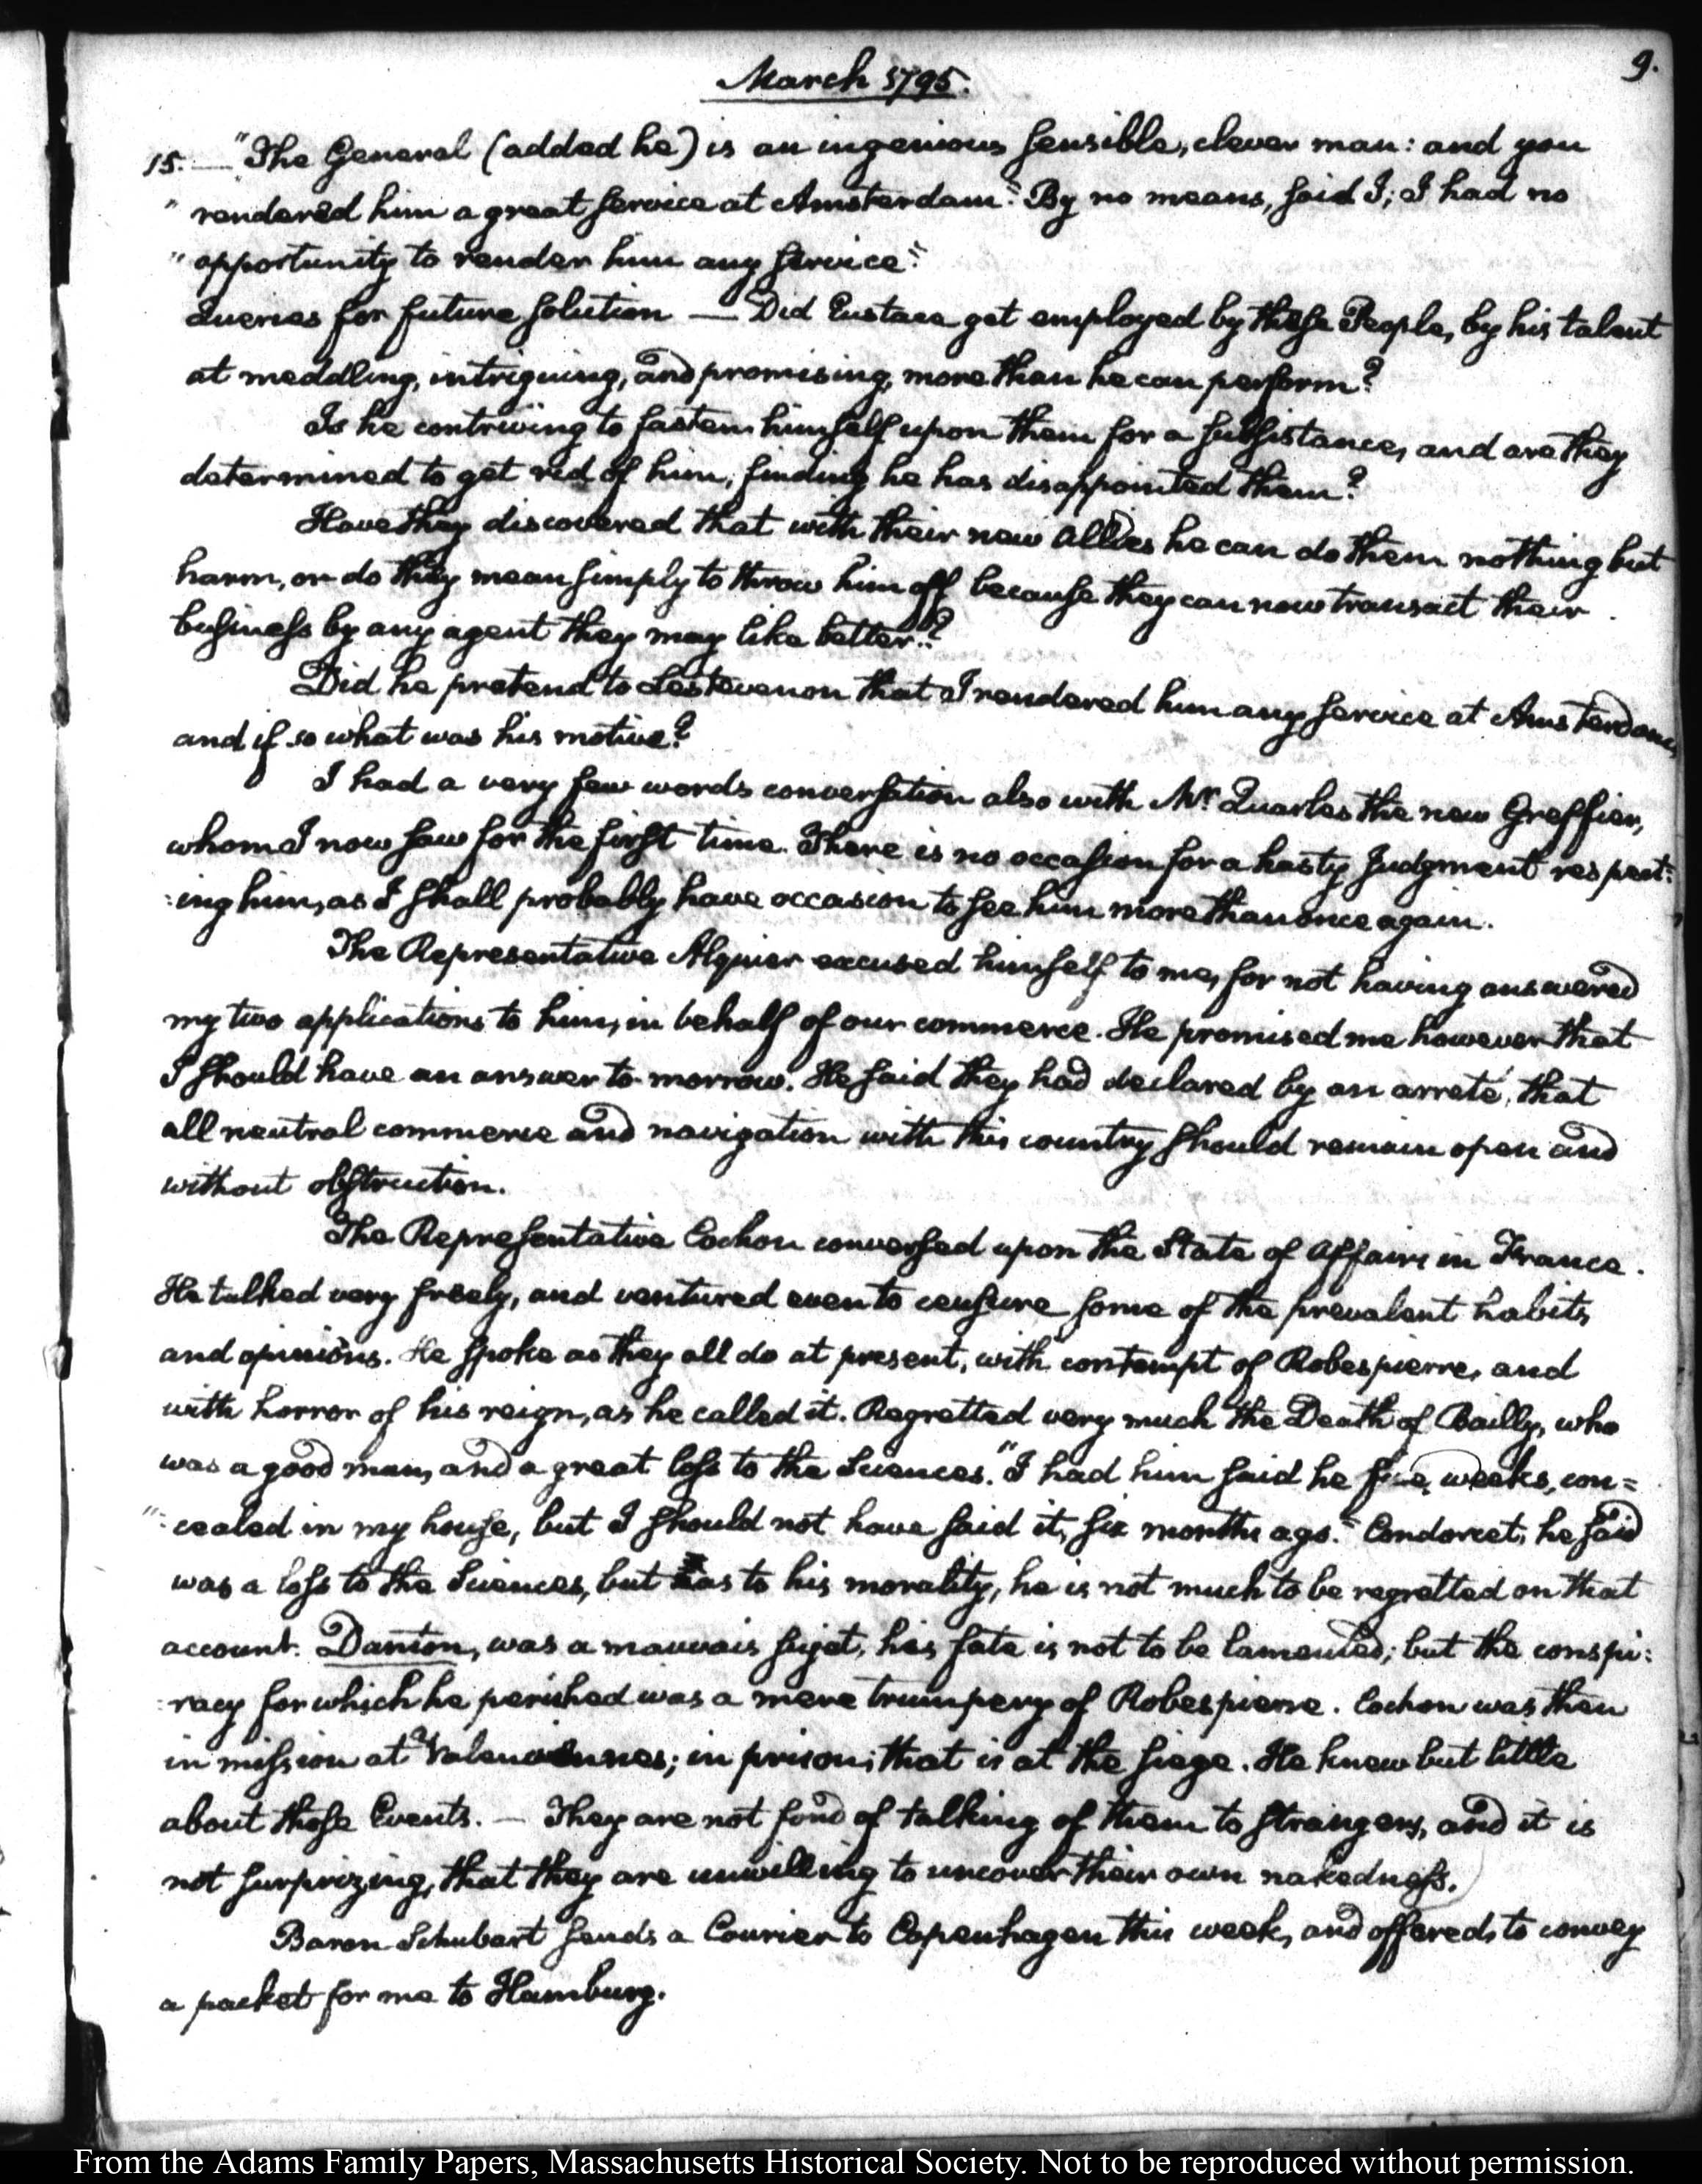 9.
March 1795.
15. — "The General (added he) is an ingenious sensible, clever man: and you
" rendered him a great service at Amsterdam." By no means, said I; I had no
" opportunity to render him any service."
Queries for future solution — Did Eustace get employed by these People, by his talent
at meddling, intriguing, and promising, more than he can perform?
Is he contriving to fasten himself upon them for a subsistance, and are they
determined to get rid of him, finding he has disappointed them?
Have they discovered that with their new allies he can do them nothing but
harm, or do they mean simply to throw him off because they can now transact their
business by any agent they may like better?
Did he pretend to Lestevenon that I rendered him any service at Amsterdam,
and if so what was his motive?
I had a very few words conversation also with Mr. Quarles the new Greffier,
whom I now saw for the first time. There is no occasion for a hasty Judgment respect:
:ing him, as I shall probably have occasion to see him more than once again.
The Representative Alquier excused himself to me, for not having answered
my two applications to him, in behalf of our commerce. He promised me however that
I should have an answer to-morrow. He said they had declared by an arreté, that
all neutral commerce and navigation with this country should remain open and
without obstruction.
The Representative Cochon conversed upon the State of Affairs in France.
He talked very freely, and ventured even to censure some of the prevalent habits
and opinions. He spoke as they all do at present, with contempt of Robespierre, and
with horror of his reign, as he called it. Regretted very much the Death of Bailly, who
was a good man, and a great loss to the Sciences. "I had him said he five weeks, con=
": cealed in my house, but I should not have said it, six months ago." Condorcet, he said
was a loss to the Sciences, but as to his morality, he is not much to be regretted on that
account. Danton, was a mauvais sujet, his fate is not to be lamented; but the conspi:
:racy for which he perished was a mere trumpery of Robespierre. Cochon was then
in mission at Valenciennes; in prison; that is at the siege. He knew but little
about those Events. — They are not fond of talking of them to strangers, and it is
not surprizing, that they are unwilling to uncover their own nakedness.
Baron Schubart sends a Courier to Copenhagen this week, and offered to convey
a packet for me to Hamburg.
From the Adams Family Papers, Massachusetts Historical Society. Not to be reproduced without permission.